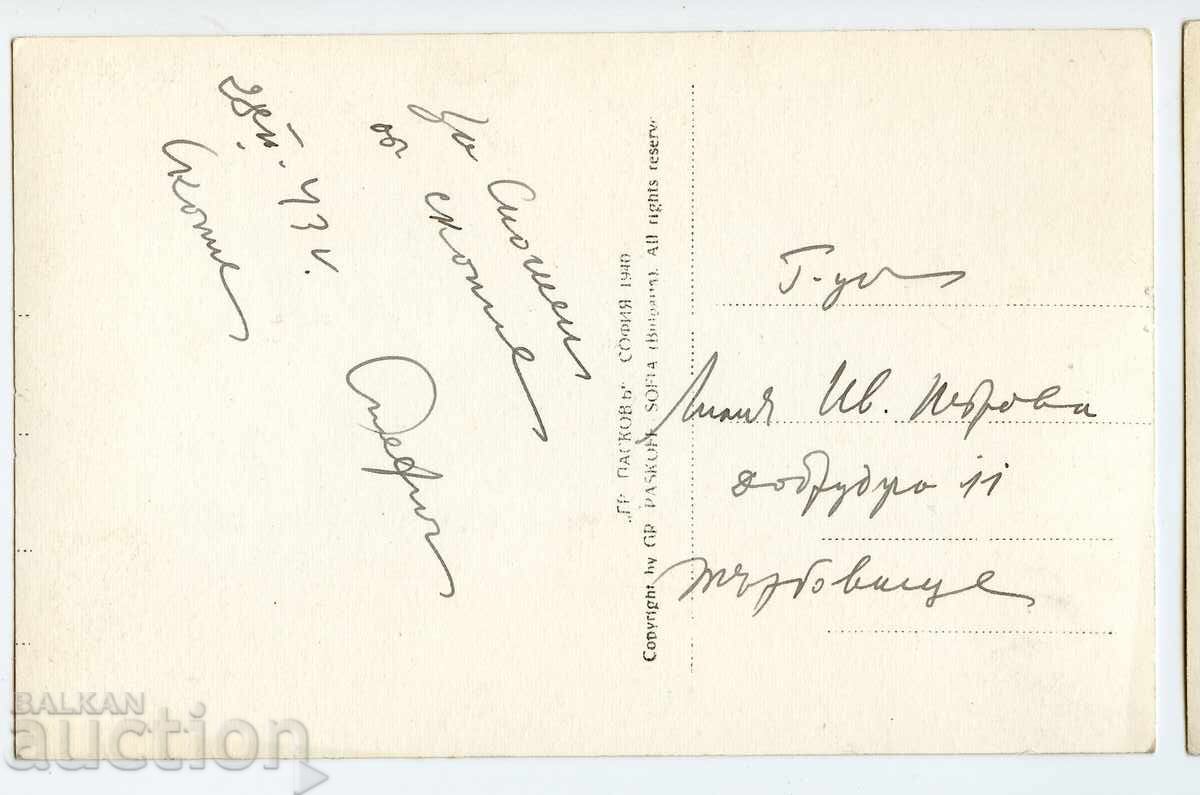 За Спомен
от Скопие
Стефан
43 г.
Скопие
„ГР. ПАСКОВЪ“ СОФИЯ 1940
Copyright by GR PASKOFF SOFIA (Bulgaria). All rights reserv.
Г-ца
Лилия Ив. Петрова
Добруджа 11
Търговище
BALKAN
auction